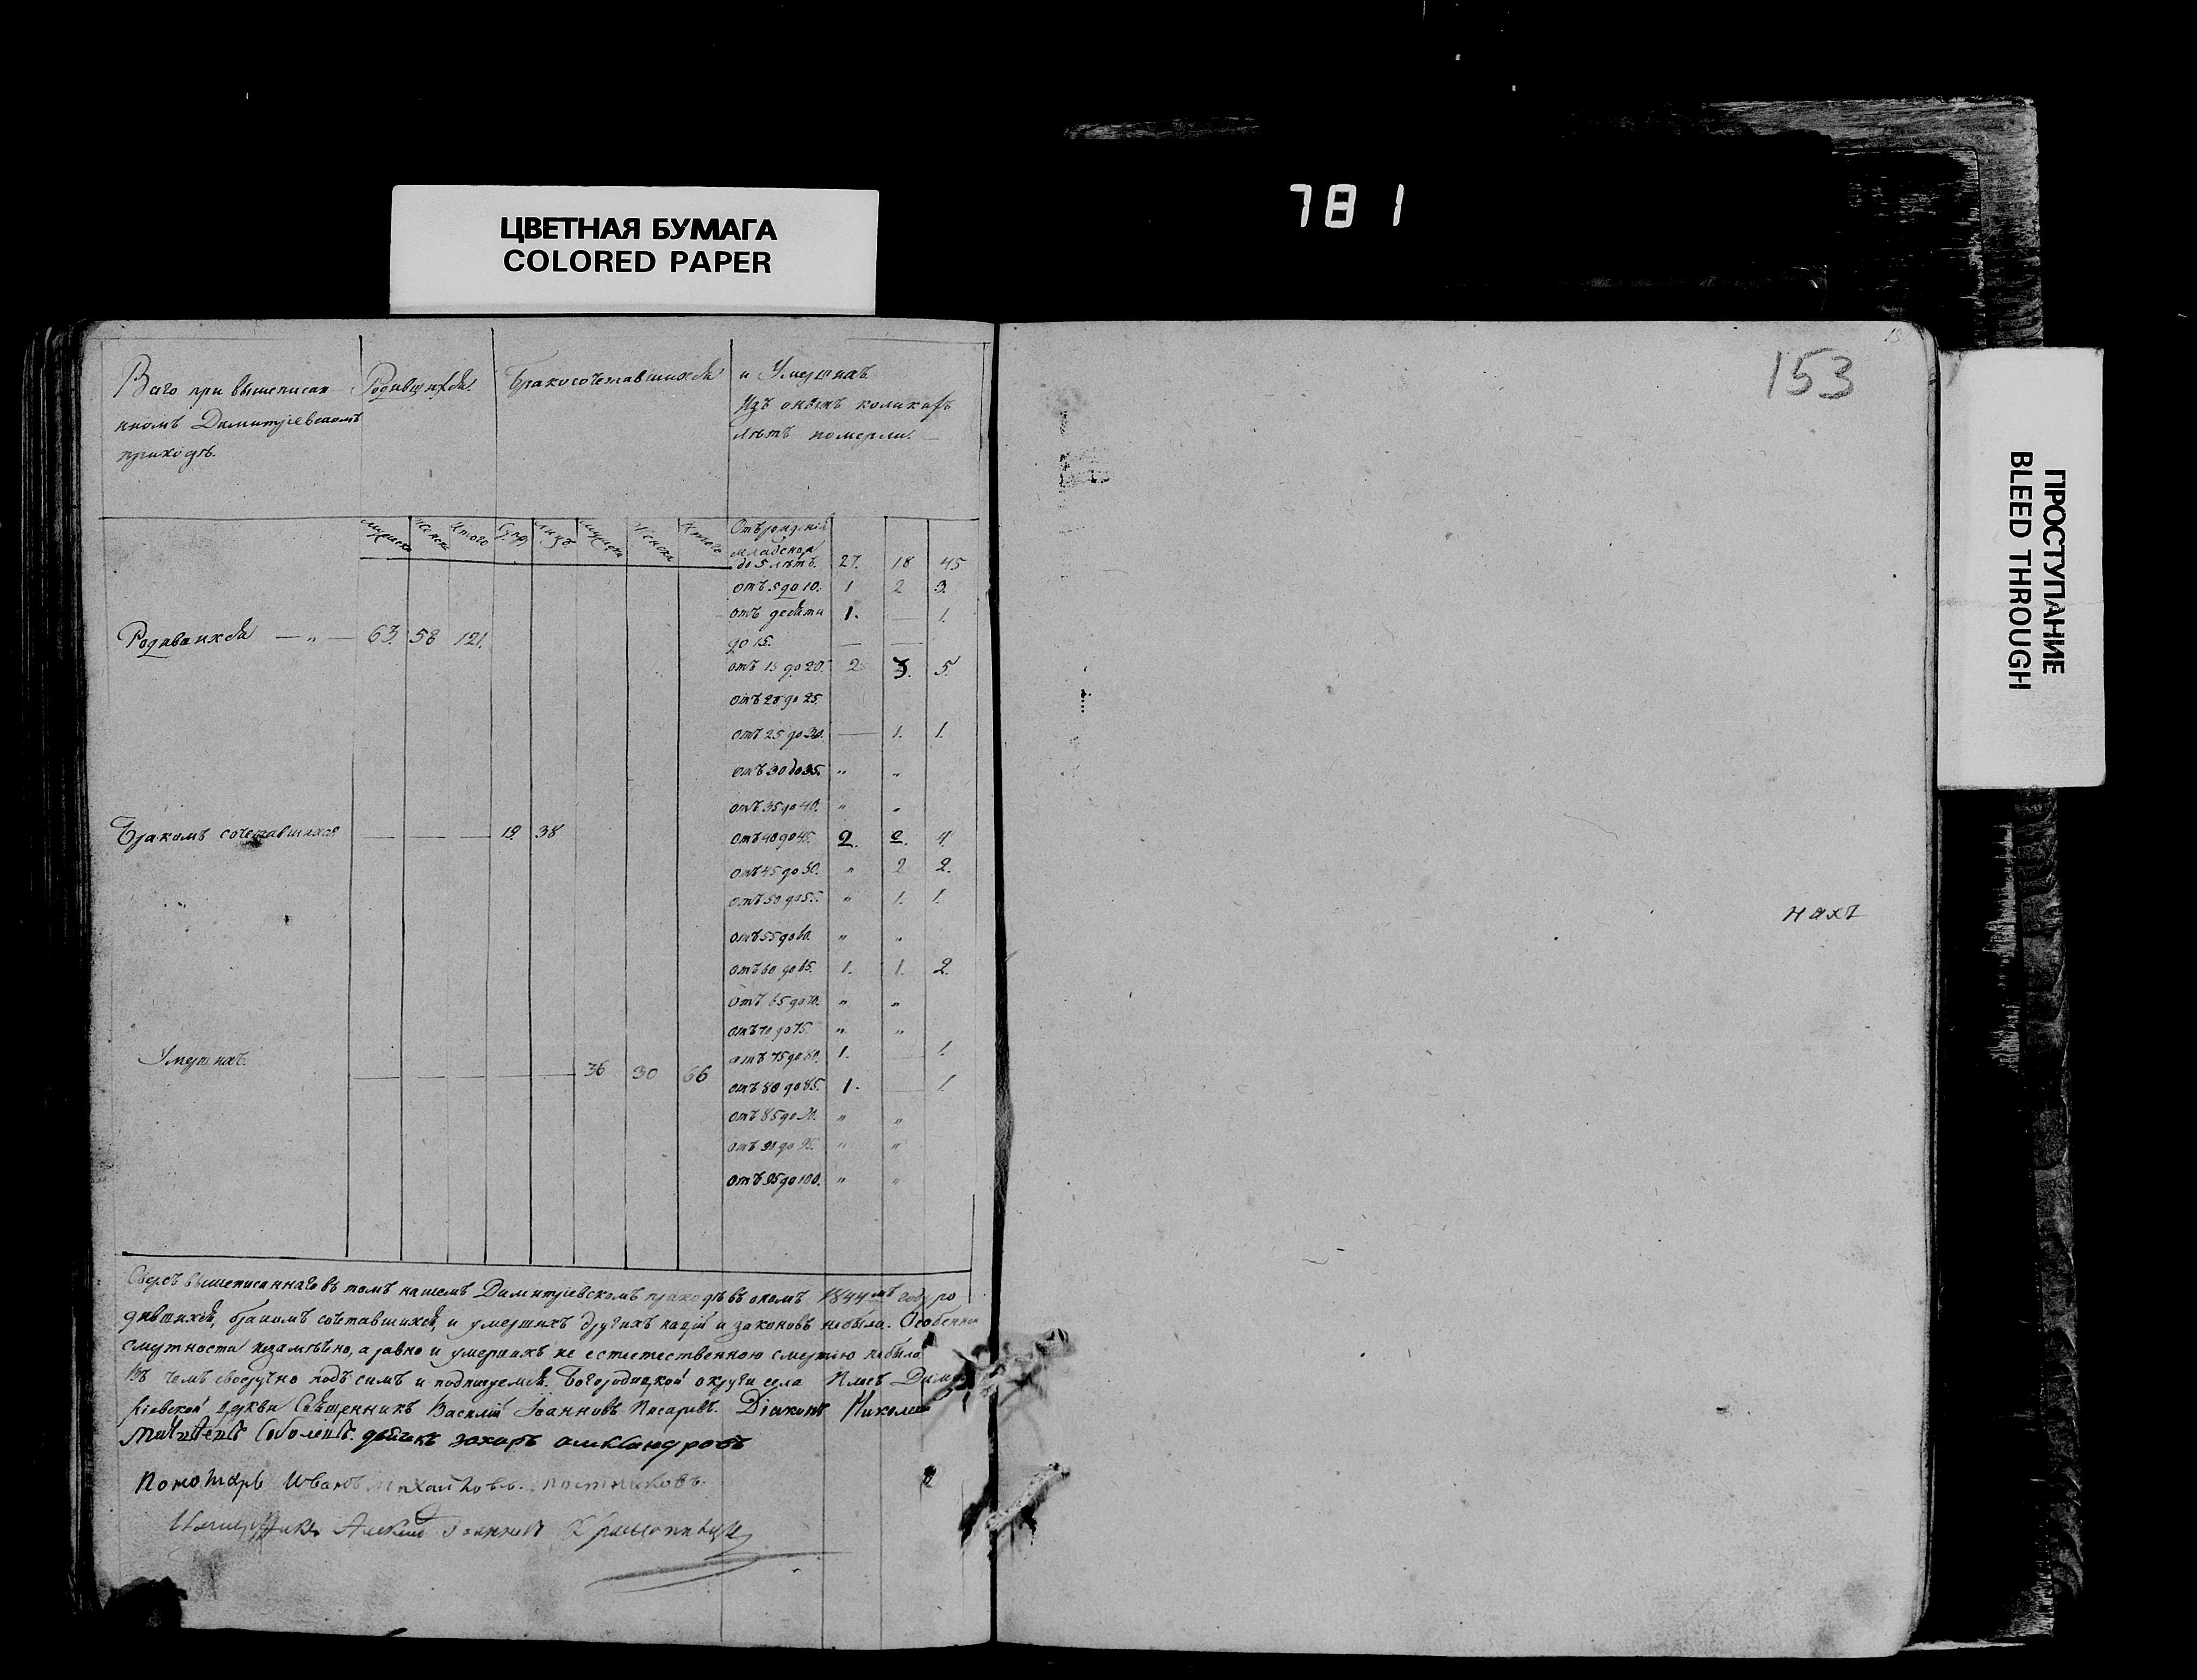 781
ЦВЕТНАЯ БУМАГА
COLORED PAPER
ПРОСТУПАНИЕ
BLEED THROUGH
153
Всего при вышеписан
нномъ Димитріевскомъ
приходѣ.
Родившихся.
Бракосочетавшихся
и Умершихъ.
Изъ оныхъ коликихъ
лѣтъ померли.
мужеска
женска
итого
лицъ
мужеска
женска
итого
Отъ рожденія
младенца
до 5 лѣтъ. 27. 18 45
отъ 5 до 10. 1 2 3.
отъ десяти 1. — 1.
до 15. — —
Родившихся — „ — 63. 58 121.
отъ 15 до 20. 2 3. 5.
отъ 20 до 25.
отъ 25 до 30. — 1. 1.
отъ 30 до 35. „ „
отъ 35 до 40. „ „
Бракомъ сочетавшихся — — — 19. 38
отъ 40 до 45. 2. 2. 4.
отъ 45 до 50. „ 2 2.
отъ 50 до 55. „ 1. 1.
отъ 55 до 60. „ „
отъ 60 до 65. 1. 1. 2.
отъ 65 до 70. „ „
отъ 70 до 75. „ „
Умершихъ. — — — — — 36 30 66
отъ 75 до 80. 1. — 1.
отъ 80 до 85. 1. — 1.
отъ 85 до 90. „ „
отъ 90 до 95. „ „
отъ 95 до 100. „ „
нихъ
Сверхъ вышеписаннаго въ томъ нашемъ Димитріевскомъ приходѣ въ ономъ 1844мъ году ро
дившихся, бракомъ сочетавшихся, и умершихъ другихъ націй и законовъ небыло. Особенной
смертности незамѣчено, а равно и умершихъ не естественною смертію небыло.
Въ чемъ своеручно подъ симъ и подписуемся. Богородицкой округи села Димит
ріевской церкви Священникъ Василій Іоанновъ Писаревъ. Діаконъ Николай
дьячекъ захаръ александровъ
Пономарь Иванъ михайловъ постниковъ.